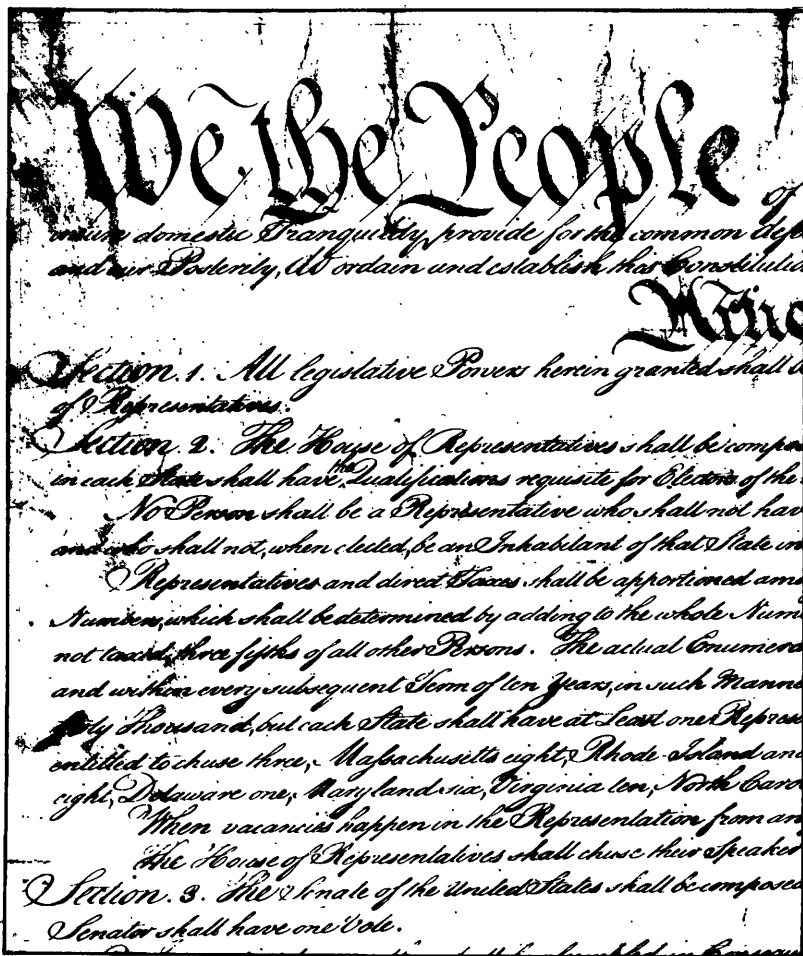 We the People of
insure domestic Tranquility, provide for the common defe
and our Posterity, do ordain and establish this Constitutio
Artic
Section. 1. All legislative Powers herein granted shall b
of Representatives.
Section. 2. The House of Representatives shall be compo
in each State shall have the Qualifications requisite for Electors of the
No Person shall be a Representative who shall not hav
and who shall not, when elected, be an Inhabitant of that State in
Representatives and direct Taxes shall be apportioned amo
Numbers, which shall be determined by adding to the whole Num
not taxed, three fifths of all other Persons. The actual Enumera
and within every subsequent Term of ten Years, in such Manne
Thousand, but each State shall have at Least one Repres
entitled to chuse three, Massachusetts eight, Rhode-Island and
eight, Delaware one, Maryland six, Virginia ten, North Caro
When vacancies happen in the Representation from an
The House of Representatives shall chuse their Speaker
Section. 3. The Senate of the United States shall be composed
Senator shall have one Vote.